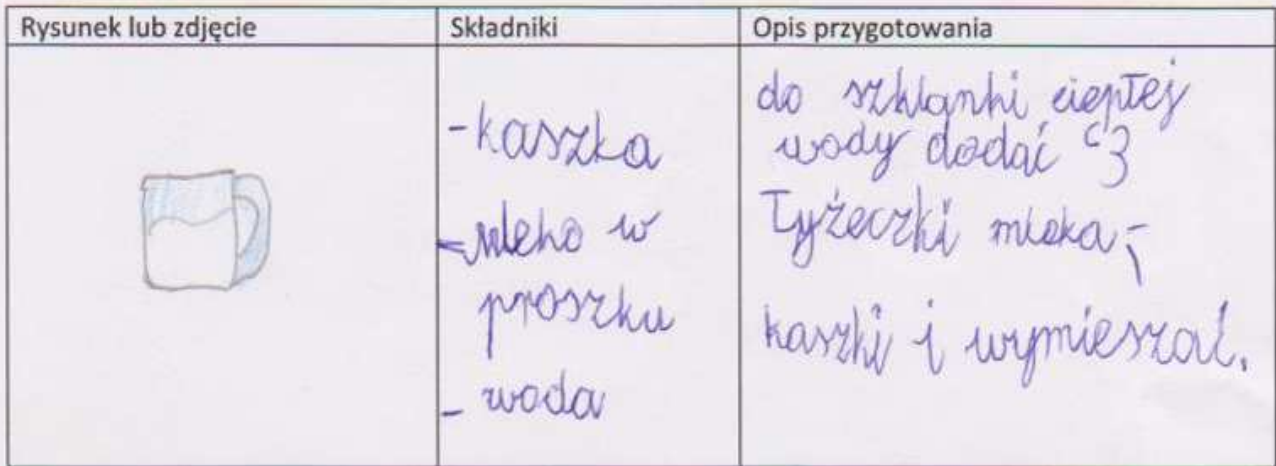 Rysunek lub zdjęcie
Składniki
Opis przygotowania
- kaszka
- mleko w
proszku
- woda
do szklanki ciepłej
wody dodać 3
łyżeczki mleka,
kaszki i wymieszać.